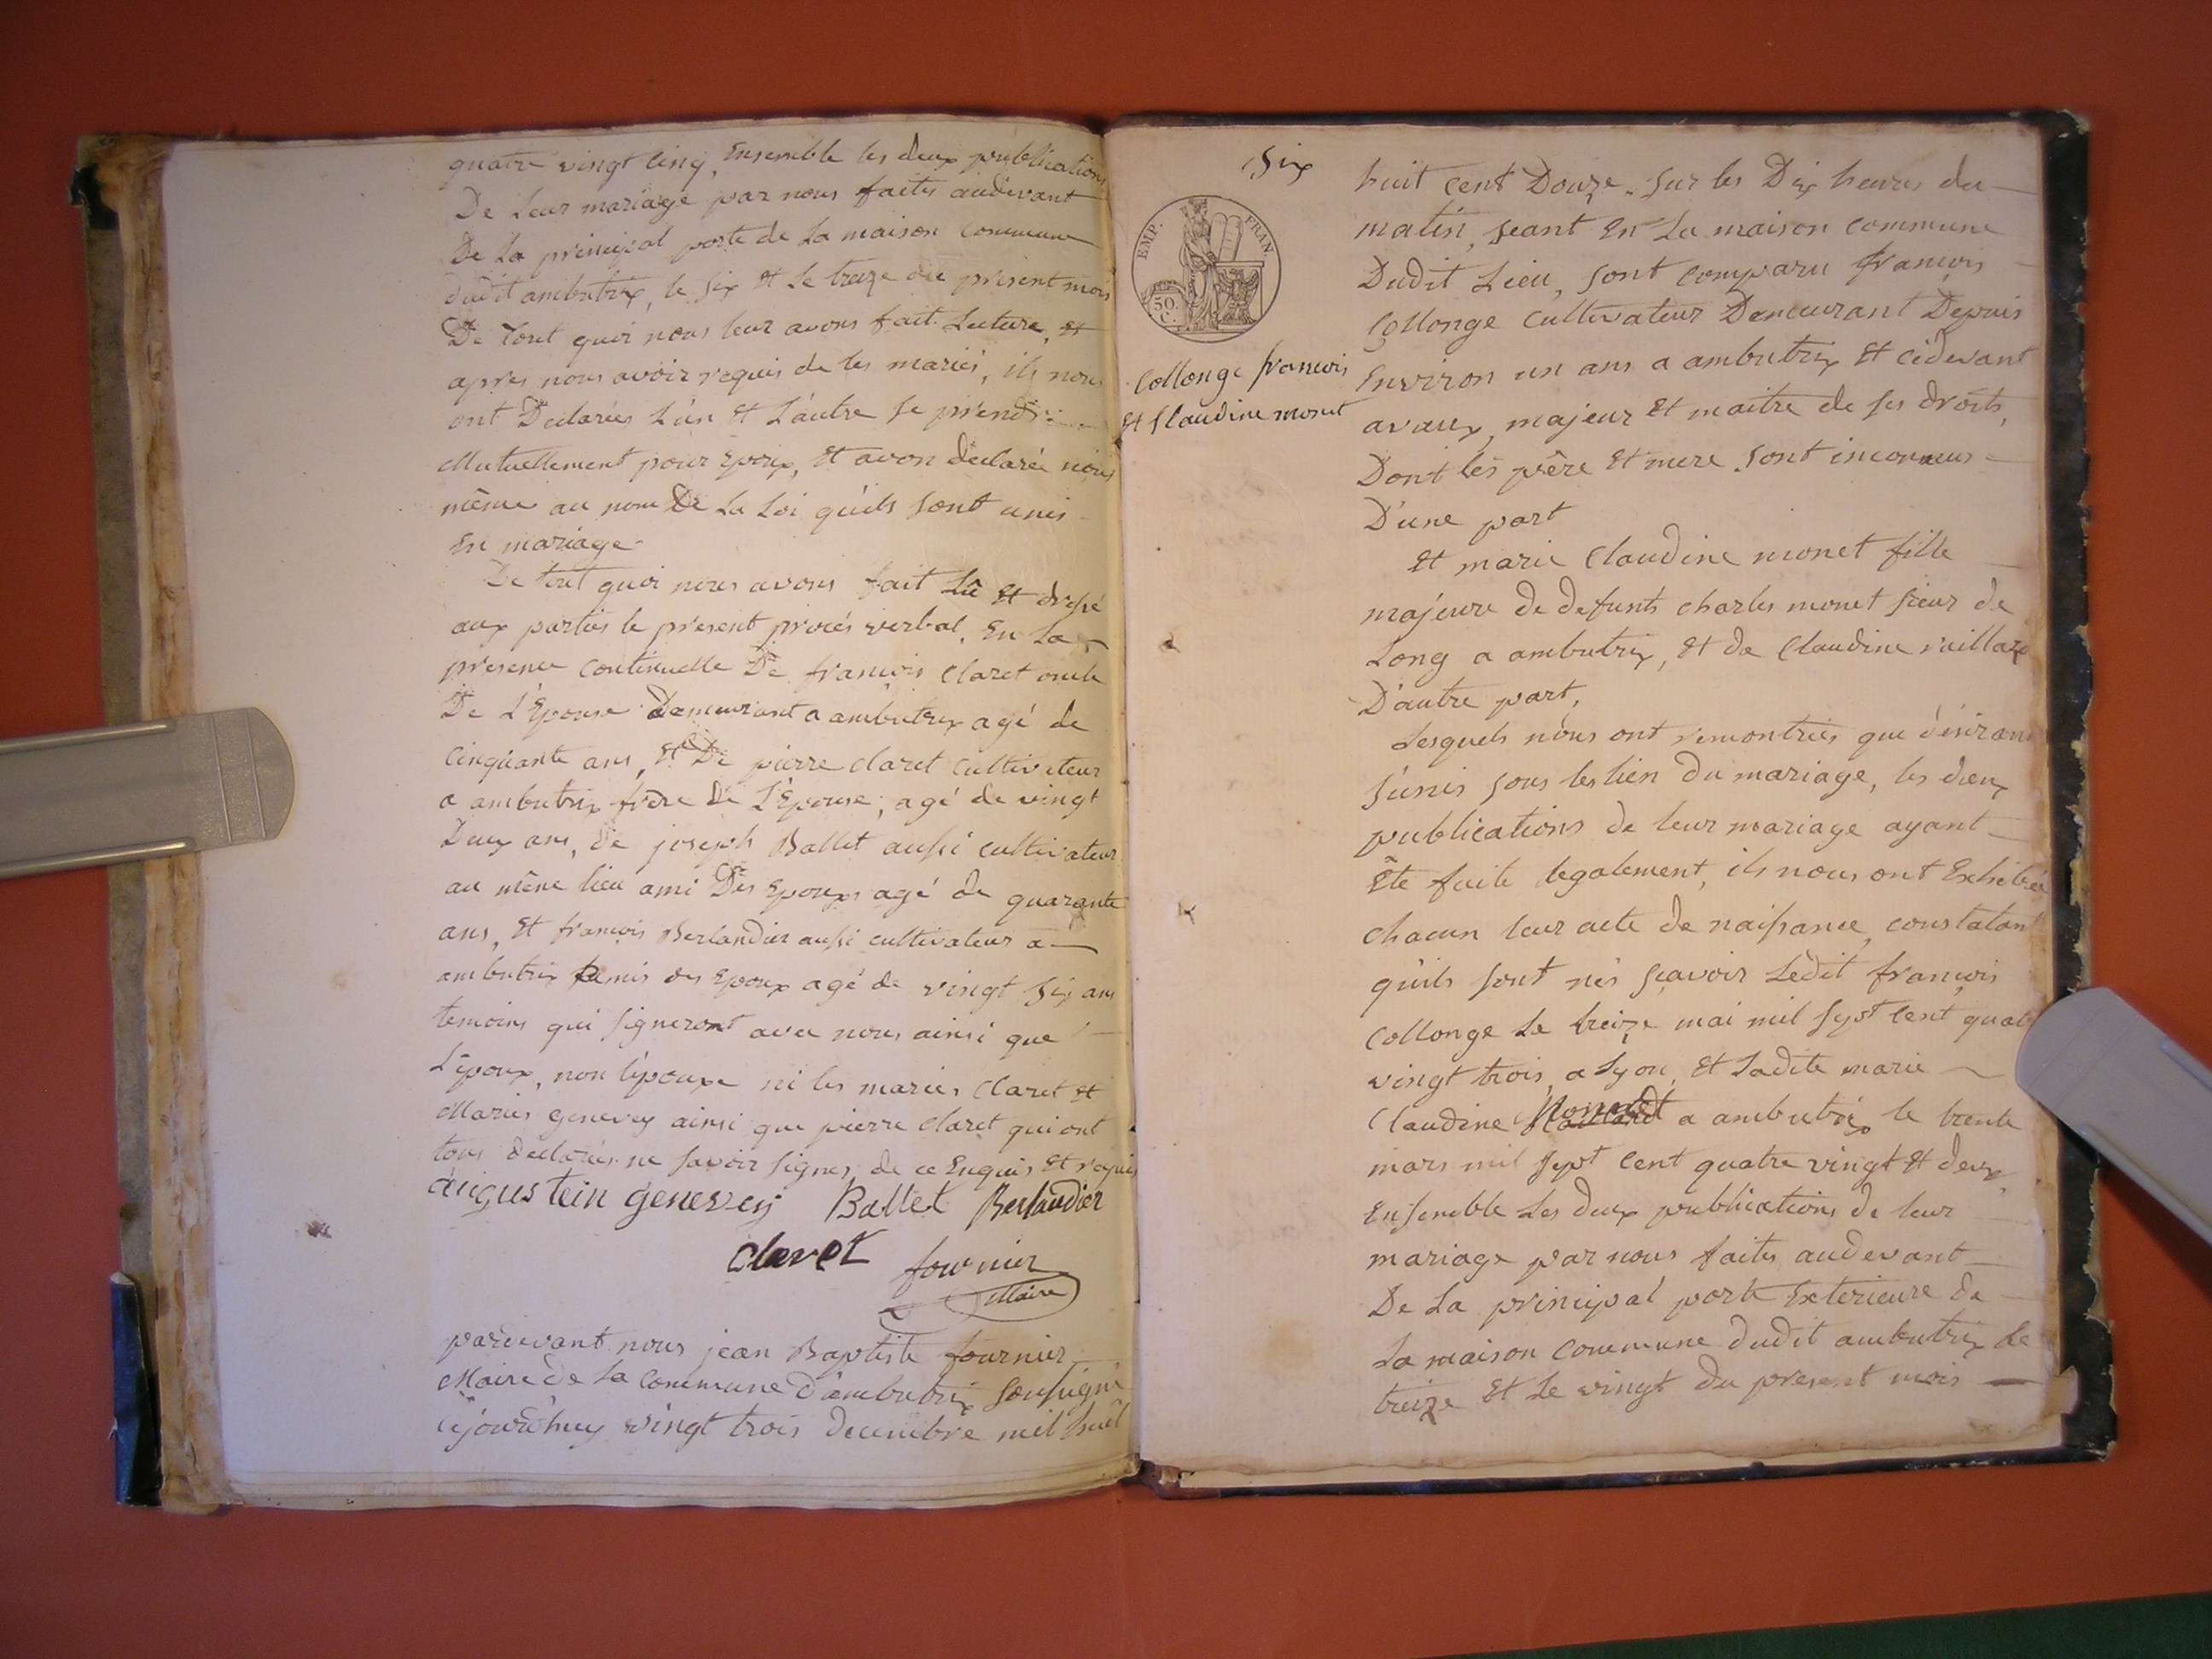 quatre vingt cinq, Ensemble les deux publications
De Leur mariage par nous faites audevant
De La principal porte de La maison Commune
dudit ambutrix, le six Et Le treize du present mois
De Tout quoi nous leur avons fait Lecture, Et
apres nous avoir requis de les mariés, ils nous
ont Declarées L'un Et L'autre se prendre
Mutuellement pour Epoux, Et avon declarée nous
même au nom De La Loi qu'ils sont unis
En mariage
De tout quoi nous avons fait Lû Et dressé
aux parties le present procés verbal, En La
presence Continuelle De françois Claret oncle
De L'Epouse Demeurant a ambutrix agé de
Cinquante ans, Et De pierre claret Cultivateur
a ambutrix frère De L'Epouse, agé de vingt
Deux ans, De joseph Ballet aussi cultivateur
au même lieu ami Des Epoux agé de quarante
ans, Et françois Berlandier aussi cultivateur a
ambutrix amis des Epoux agé de vingt six ans
temoins qui signeront avec nous ainsi que
L'époux, non l'epouse ni les mariés Claret Et
Mariés genevey ainsi que pierre Claret qui ont
tous declarés ne savoir signer, de ce Enquis Et requis
augustein genevey Ballet Berlandier
Claret fournier
Maire
pardevant nous jean Baptiste fournier
Maire de La Commune D'ambutrix soussigné
cejourd'huy vingt trois decembre mil huit
Six
EMP. FRAN.
50 C.
Collonge francois
Et Claudine monet
huit cent Douze. sur les Dix heures du
matin, seant En La maison commune
Dudit Lieu, sont comparu françois
Collonge cultivateur Demeurant Depuis
Environ un ans a ambutrix Et cidevant
avaux, majeur Et maitre de ses droits,
Dont les père Et mere sont inconnus
D'une part
Et marie Claudine monet fille
majeure de defunts charles monet sieur de
Long a ambutrix, Et de Claudine vuillaz
D'autre part,
Lesquels nous ont remontrées que désirant
s'unir sous les lien du mariage, les deux
publications de leur mariage ayant
Ête faite legalement, ils nous ont Exhibée
chacun leur acte de naissance, constatant
qu'ils sont nés sçavoir Ledit françois
Collonge Le treize mai mil sept cent quatre
vingt trois, a Lyon, Et Ladite marie
Claudine Monet a ambutrix le trente
mars mil sept cent quatre vingt Et deux,
Ensemble Les deux publications de leur
mariage par nous faites audevant
De La principal porte Exterieure de
La maison Commune dudit ambutrix Le
treize Et Le vingt du present mois